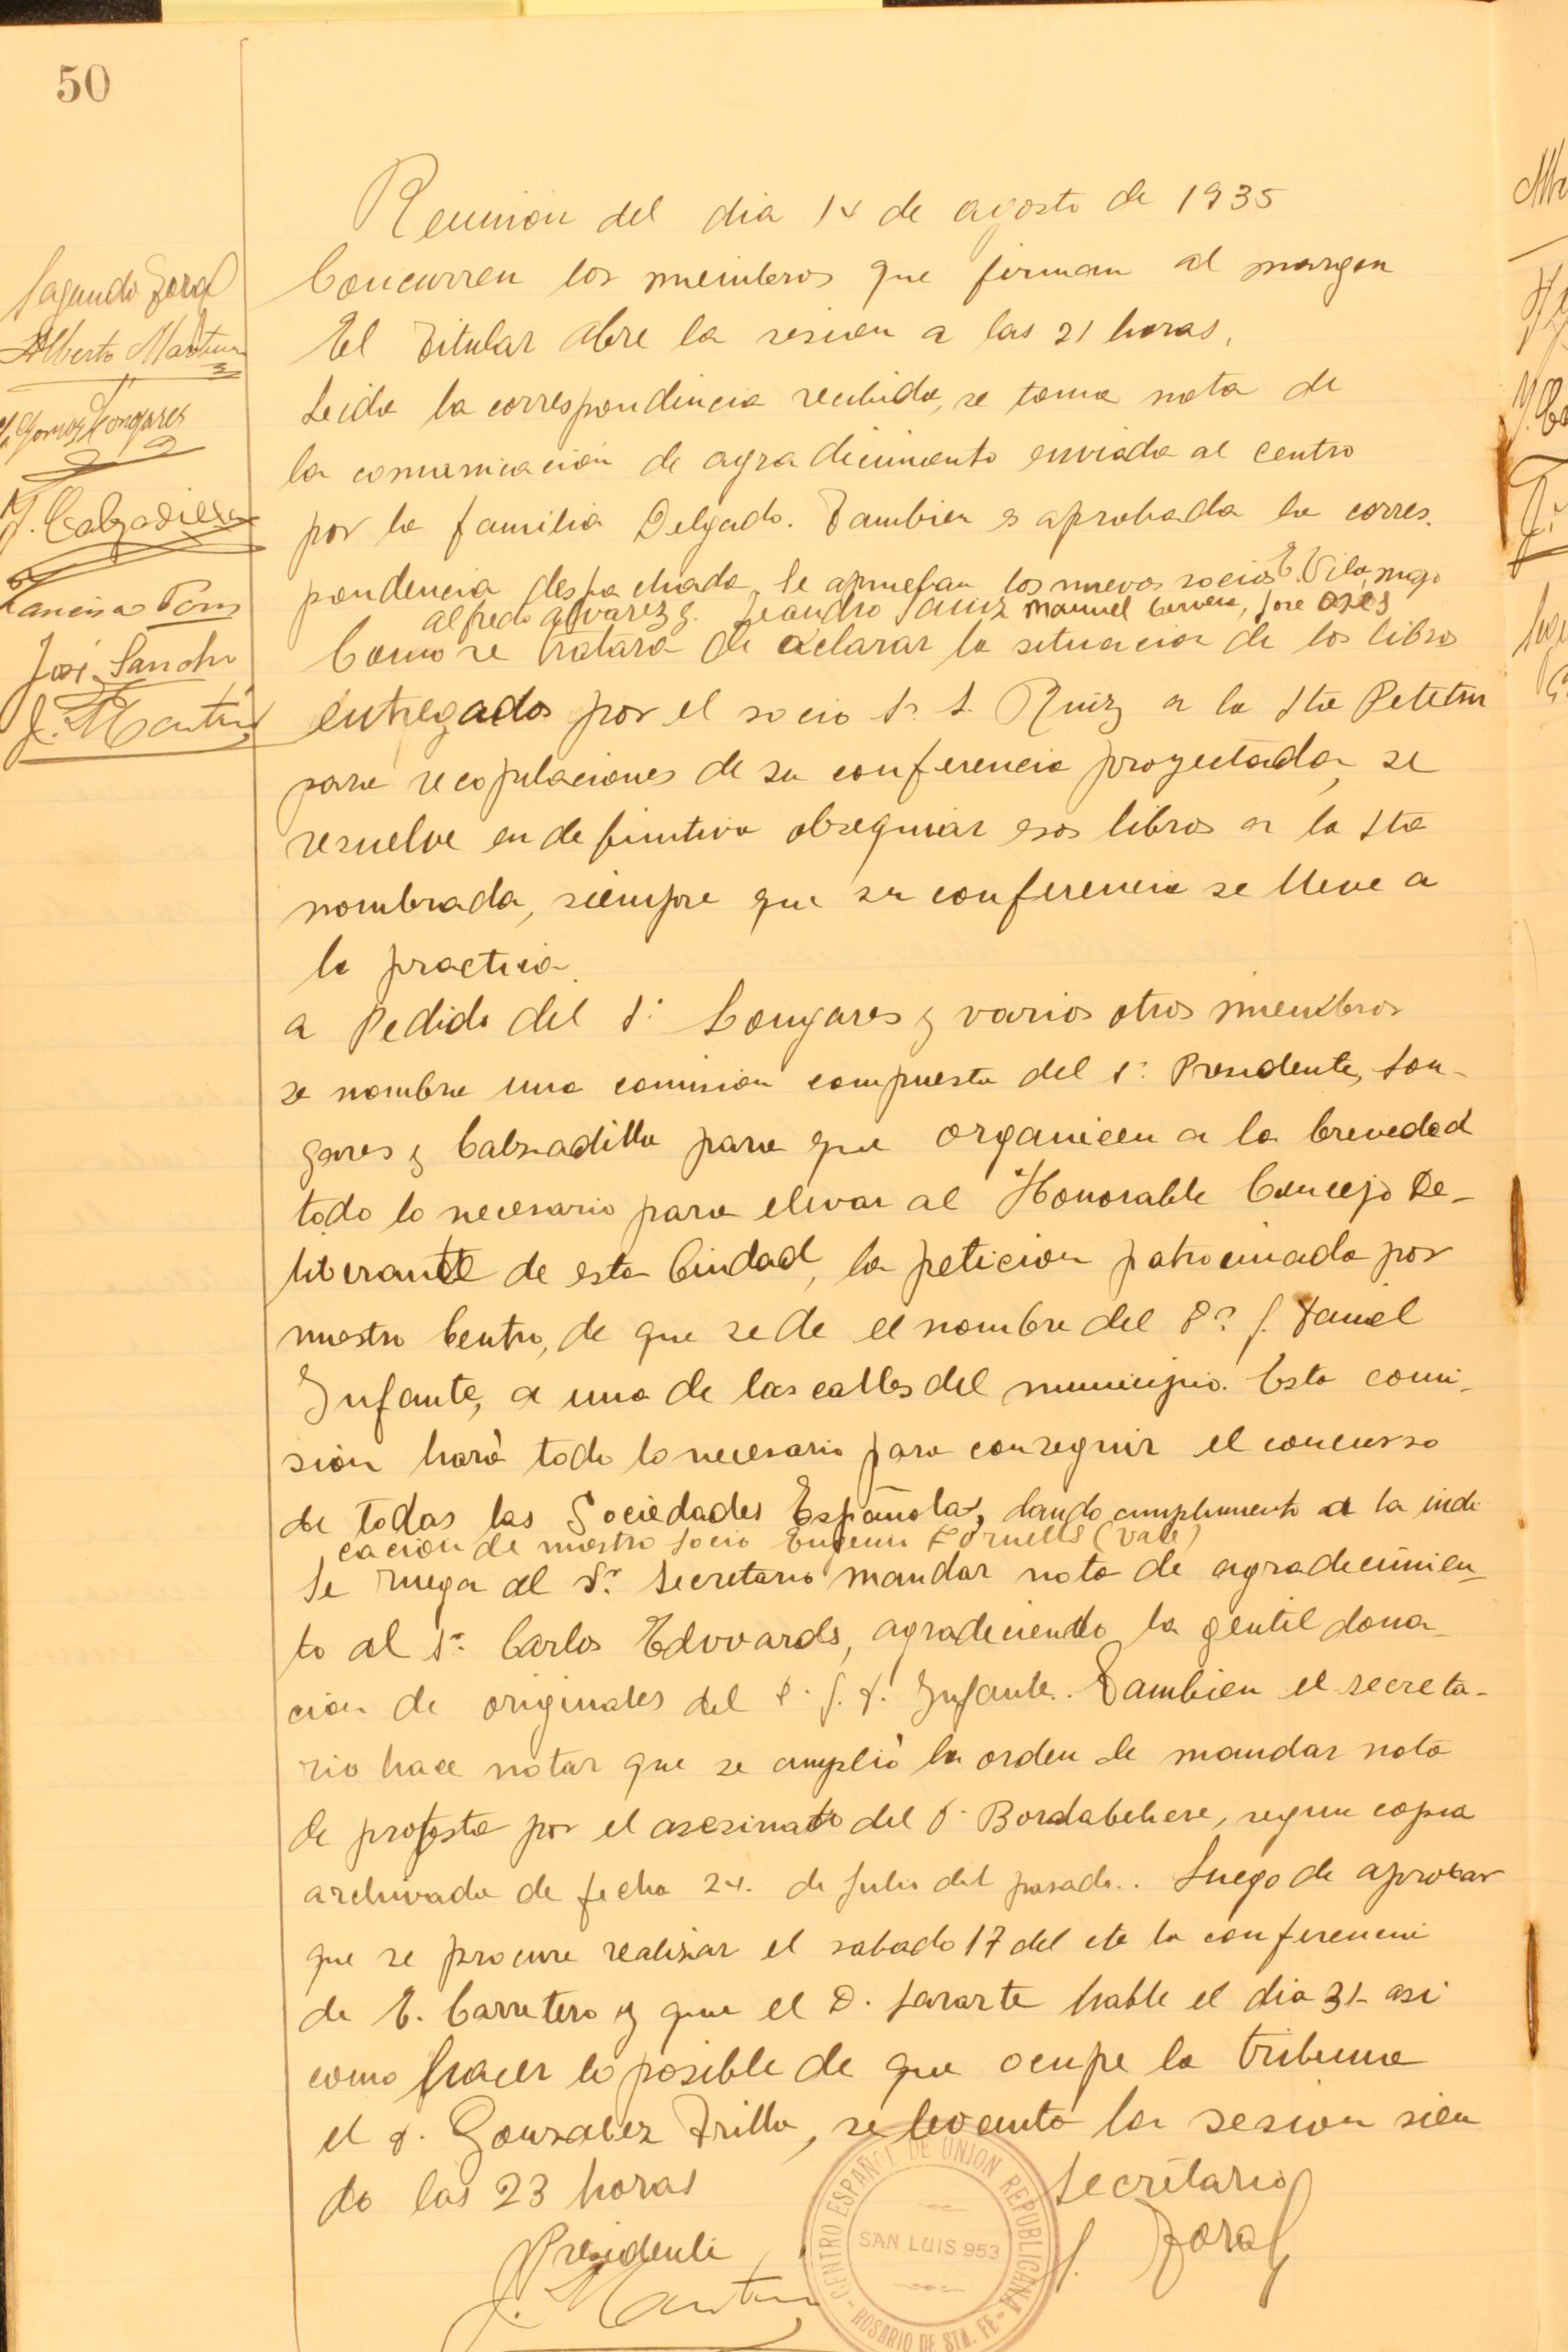 50
Reunion del dia 14 de agosto de 1935
Concurren los miembros que firman al margen
El Titular abre la sesion a las 21 horas,
Leida la correspondencia recibida, se toma nota de
la comunicación de agradecimiento enviada al centro
por la familia Delgado. Tambien es aprobada la corres-
pondencia despachada. Se aprueban los nuevos socios E. Vila,
alfredo alvarez y Leandro Sainz Manuel Cervera, Jose
Como se tratara de aclarar la situacion de los libros
entregados por el socio Sr. S. Ruiz a la Sta
para recopilaciones de su conferencia proyectada, se
resuelve en definitiva obsequiar esos libros a la Sta
nombrada, siempre que su conferencia se lleve a
la practica.
a Pedido del Sr. Longares y varios otros miembros
se nombra una comision compuesta del Sr. Presidente, Lon-
gares y Calzadilla para que organicen a la brevedad
todo lo necesario para elevar al Honorable Concejo De-
liberante de esta Ciudad, la peticion patrocinada por
nuestro Centro, de que se de el nombre del Dr. J. Daniel
Infante, a una de las calles del municipio. Esta comi-
sion hará todo lo necesario para conseguir el concurso
de todas las Sociedades Españolas, dando cumplimento a la indi
cacion de nuestro socio Eugenio Fornells (Vale)
Se ruega al Sr. Secretario mandar nota de agradecimien-
to al Sr. Carlos Edwards, agradeciendo la gentil dona-
cion de originales del D. J. D. Infante. Tambien el secreta-
rio hace notar que se cumplió la orden de mandar nota
de protesta por el asesinato del D. Bordabehere, segun copia
archivada de fecha 24. de Julio del pasado.. Luego de aprobar
que se procure realizar el sabado 17 del cte la conferencia
de E. Carretero y que el D. Lararte hable el dia 31 asi
como hacer lo posible de que ocupe la tribuna
el D. Gonzalez Trillo, se levanta la sesion sien
do las 23 horas
Presidente
J. Martin
Secretario
S. Zoral
Segundo Zoral
Alberto Martinez
Gomez Longares
J. Calzadilla
Francisco Pons
José Sancho
J. Martin
CENTRO ESPAÑOL DE UNION REPUBLICANA
SAN LUIS 953
ROSARIO DE STA. FE